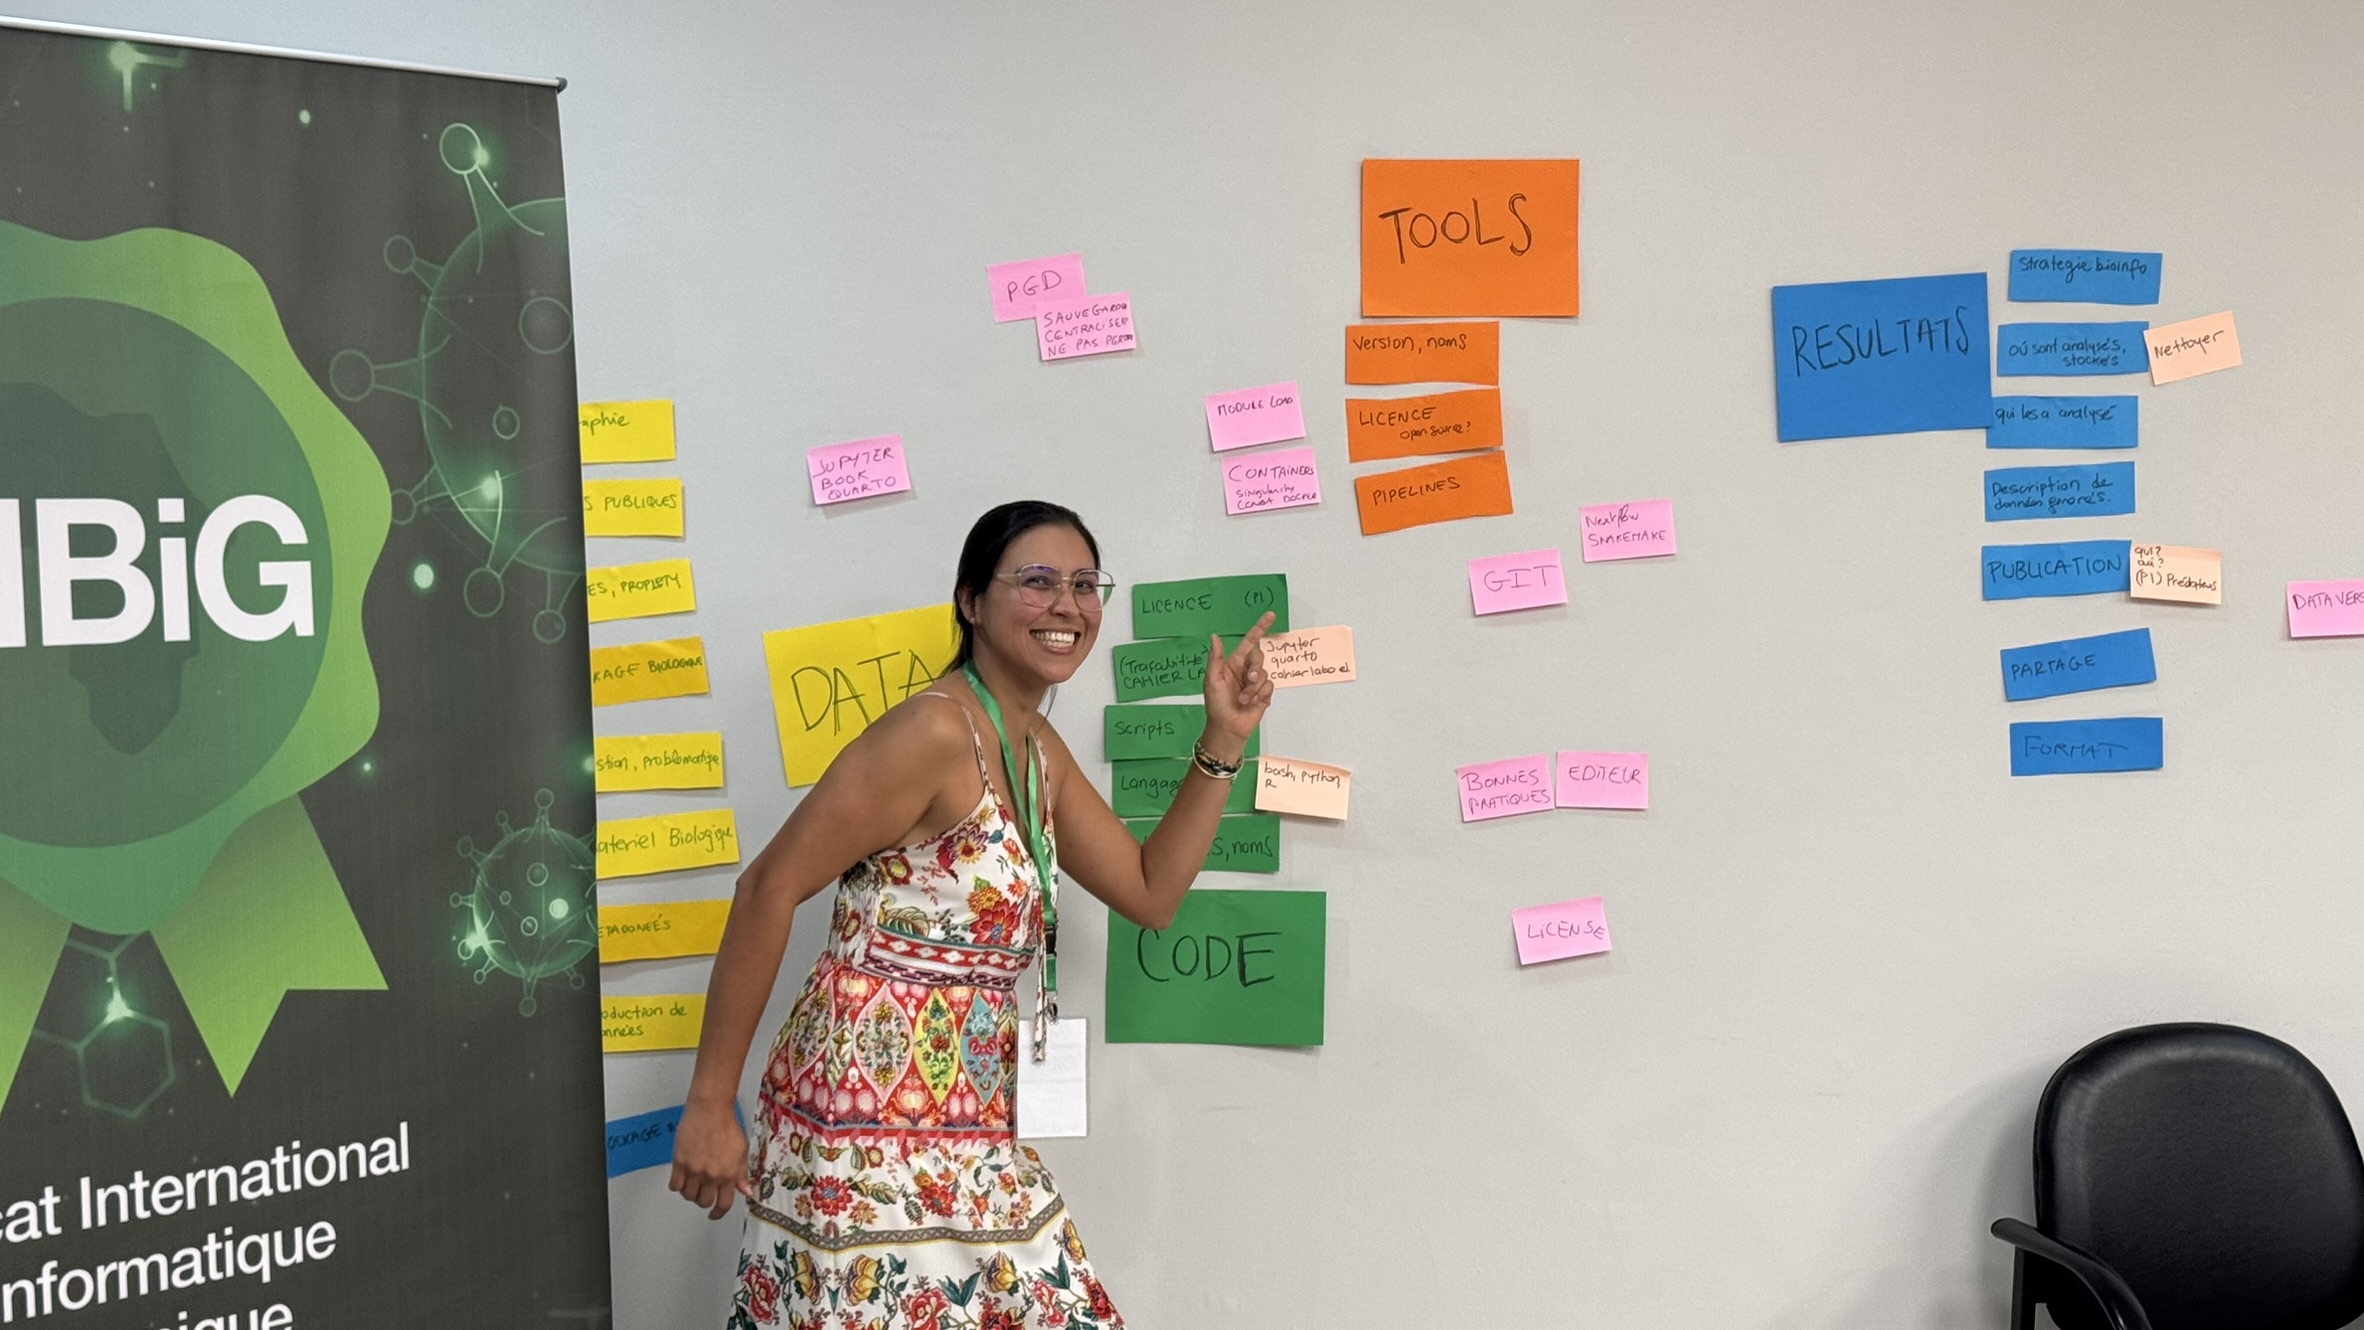 BiG
cat International
nformatique
nique
aphie
S PUBLIQUES
ES, PROPIETY
KAGE BIOLOGIQUE
stion, problématique
ateriel Biologique
ETADONEÉS
oduction de
nnées
OCKAGE
DATA
JUPYTER
BOOK
QUARTO
PGD
SAUVEGARDE
CENTRALISER
NE PAS
MODULE LOAD
CONTAINERS
Singularity
CONDA DOCKER
TOOLS
Version, noms
LICENCE
open source?
PIPELINES
Nextflow
SNAKEMAKE
GIT
LICENCE (PI)
(Traçabilité
CAHIER LA
Jupyter
quarto
cahier labo el
Scripts
Langag
bash, python,
R
S, noms
CODE
BONNES
PRATIQUES
EDITEUR
LICENSE
RESULTATS
Strategie bioinfo
où sont analysés,
stockés
Nettoyer
qui les a analysé
Description de
données générés.
PUBLICATION
qui?
où?
(PI) Prédateurs
PARTAGE
FORMAT
DATAVERS